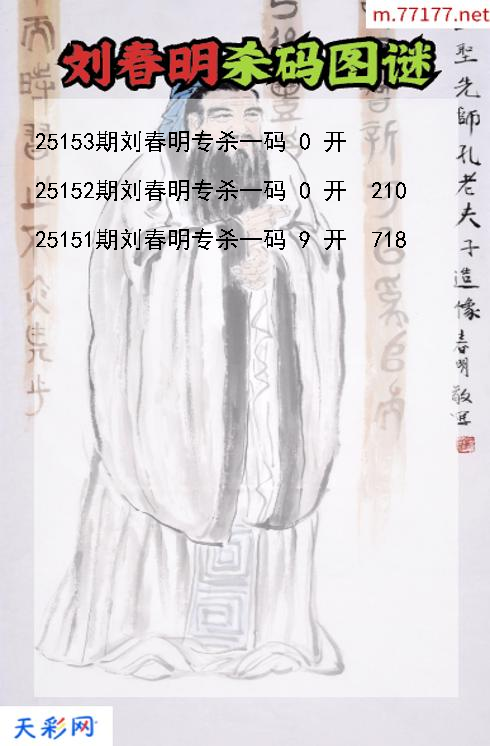 m.77177.net
刘春明杀码图谜
25153期刘春明专杀一码 0 开
25152期刘春明专杀一码 0 开 210
25151期刘春明专杀一码 9 开 718
聖先師孔老夫子造像春明敬寫
丙時習之不亦
天彩网